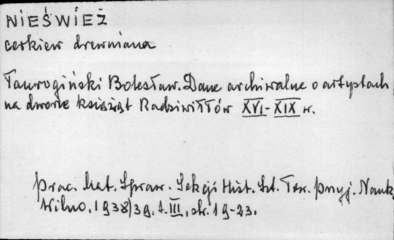 NIEŚWIEŻ
cerkiew drewniana
Taurogiński Bolesław. Dane archiwalne o artystach
na dworze książąt Radziwiłłów XVI-XIX w.
Prac. Mat. Spraw. Sekcji Hist. Szt. Tow. Przyj. Nauk
Wilno. 1938/39. t. III, str. 19-23.